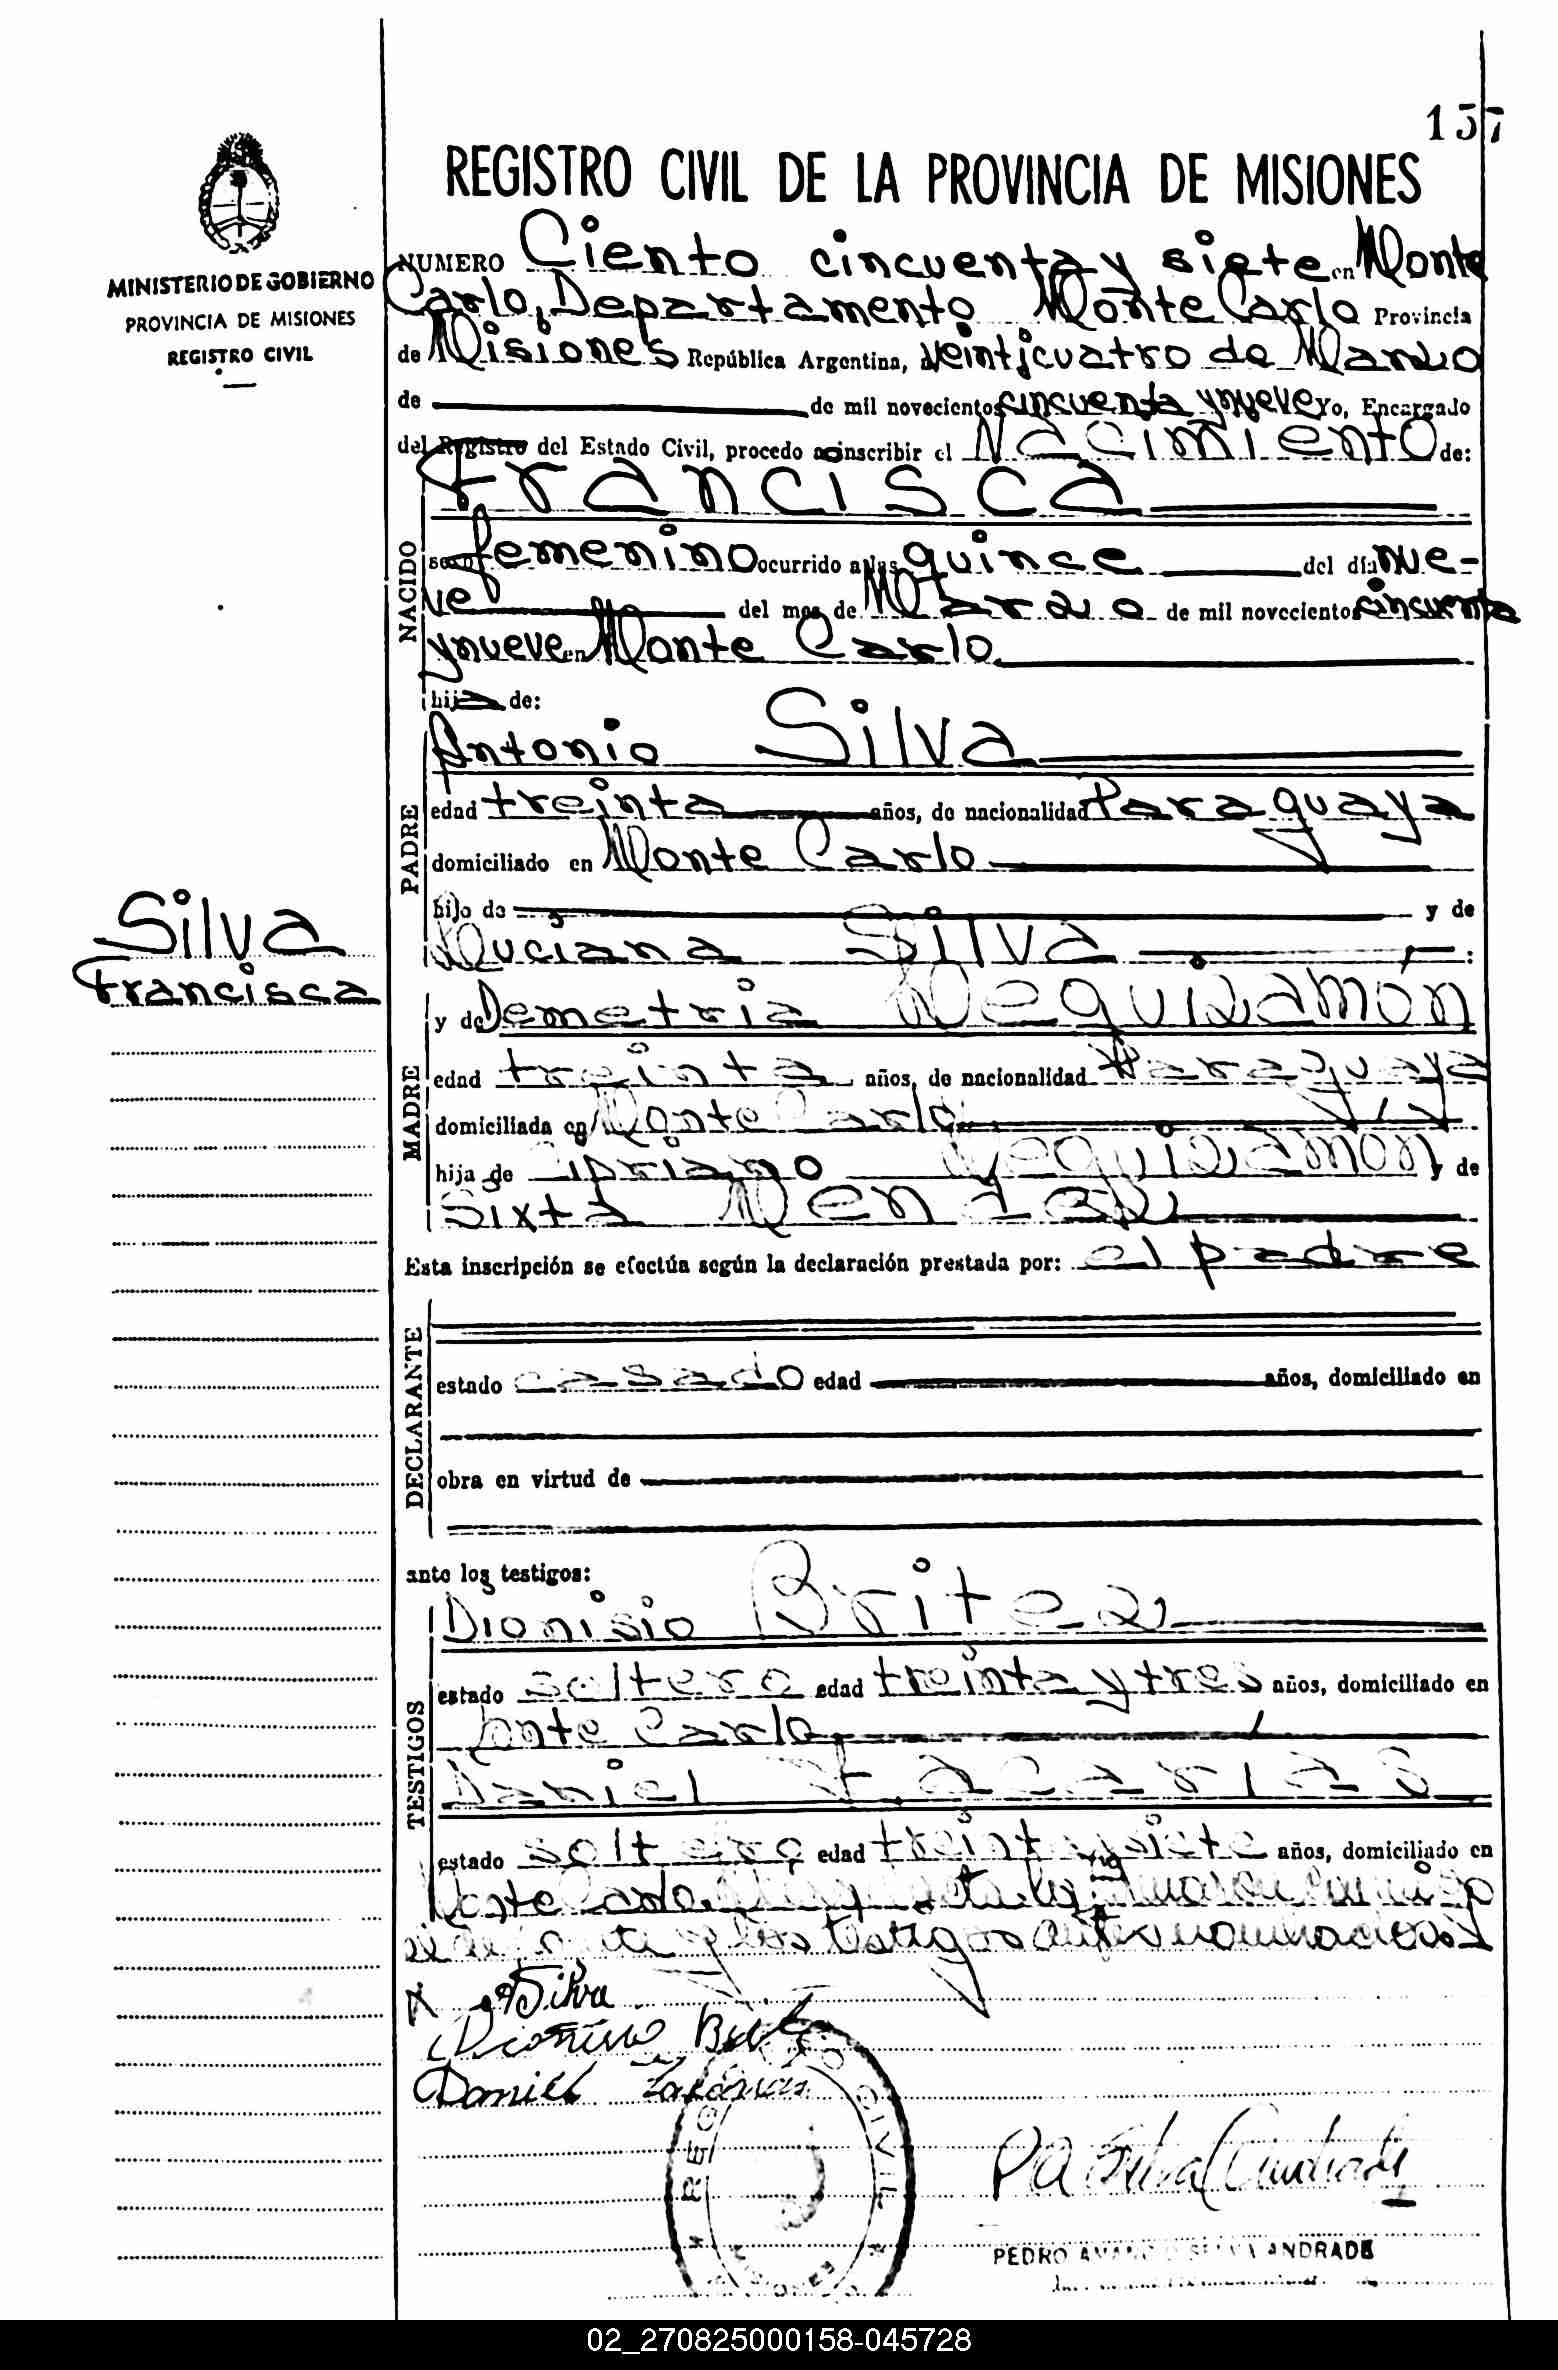 157
REGISTRO CIVIL DE LA PROVINCIA DE MISIONES
MINISTERIO DE GOBIERNO
PROVINCIA DE MISIONES
REGISTRO CIVIL
NUMERO Ciento cincuenta y siete en Monte
Carlo, Departamento Monte Carlo Provincia
de Misiones República Argentina, a veinticuatro de Marzo
de de mil novecientos cincuenta y nueve Yo, Encargado
del Registro del Estado Civil, procedo a inscribir el Nacimiento de:
Francisca
NACIDO
sexo femenino ocurrido a las quince del día nue-
ve del mes de Marzo de mil novecientos cincuenta
y nueve en Monte Carlo
hija de:
Antonio Silva
PADRE
edad treinta años, de nacionalidad Paraguaya
domiciliado en Monte Carlo
hijo de y de
Luciana Silva
Silva
Francisca
MADRE
y de Demetria
edad treinta años, de nacionalidad Paraguaya
domiciliada en Monte Carlo
hija de Cipriano y de
Sixta
Esta inscripción se efectúa según la declaración prestada por: el padre
DECLARANTE
estado casado edad años, domiciliado en
obra en virtud de
ante los testigos:
TESTIGOS
Dionisio Britez
estado soltero edad treinta y tres años, domiciliado en
Monte Carlo
Daniel Zacarias
estado soltero edad treinta y siete años, domiciliado en
Monte Carlo
y los testigos
A Silva
Dionisio Britez
Daniel Zacarias
REGISTRO CIVIL
MISIONES
PEDRO SILVA ANDRADE
02_270825000158-045728